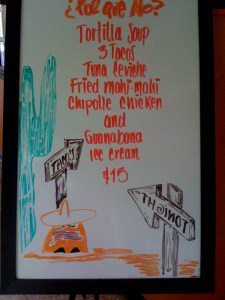 ¿Por que No?
Tortilla Soup
3 Tacos
Tuna Ceviche
Fried mahi-mahi
Chipotle Chicken
and
Guanabana
Ice cream
$15
TONIGHT